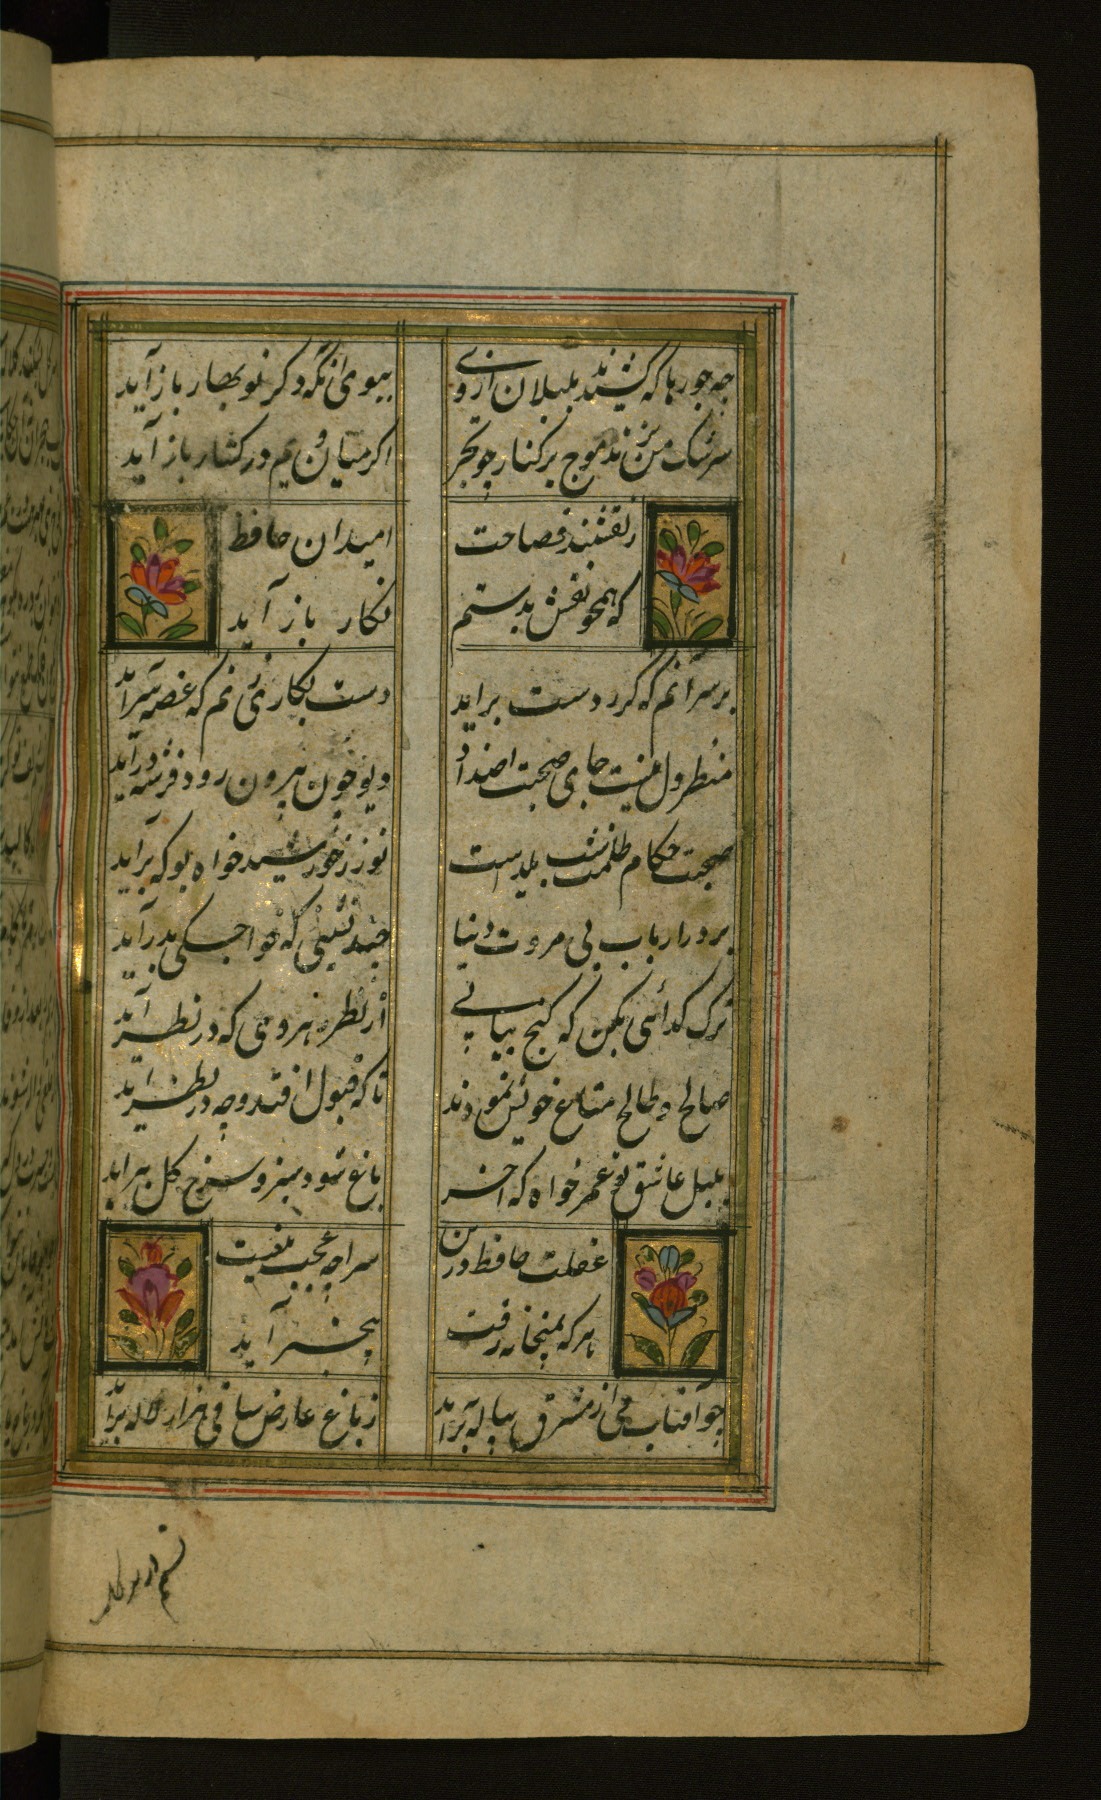 چه جورها که کشیدند بلبلان از دی
ببوی آنکه دگر نوبهار باز آید
سرشک من نزند موج بر کنار چو بحر
اگر میان ویم در کنار باز آید
ز نقشبند فصاحت
امیدان حافظ
که همچو نقش بدستم
نگار باز آید
بر سر آنم که گر ز دست براید
دست بکاری زنم که غصه سرآید
منظر دل نیست جای صحبت اضداد
دیو چون بیرون رود فرشته درآید
صحبت حکام ظلمت شب یلدست
نور ز خورشید خواه بو که برآید
بر در ارباب بی مروت دنیا
چند نشینی که خواجه کی بدر آید
ترک گدائی مکن که گنج بیابی
از نظر رهروی که در نظر آید
صالح و طالح متاع خویش نمودند
تا که قبول افتد و چه در نظر آید
بلبل عاشق تو عمر خواه که آخر
باغ شود سبز و سرخ گل ببر آید
غفلت حافظ درین
سراچه عجب نیست
هر که بمیخانه رفت
بیخبر آید
چو آفتاب می از مشرق پیاله برآید
ز باغ عارض ساقی هزار لاله برآید
نسیم در سر گل